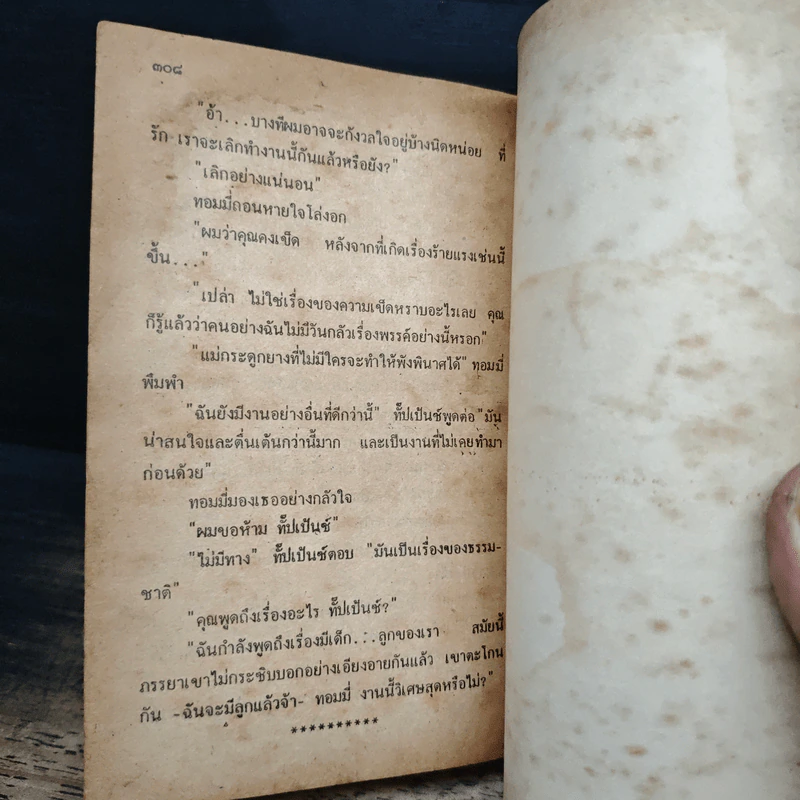 ๓๐๘
"อ้า...บางทีผมอาจจะกังวลใจอยู่บ้างนิดหน่อย ที่
รัก เราจะเลิกทำงานนี้กันแล้วหรือยัง?"
"เลิกอย่างแน่นอน"
ทอมมี่ถอนหายใจโล่งอก
"ผมว่าคุณคงเข็ด หลังจากที่เกิดเรื่องร้ายแรงเช่นนี้
ขึ้น..."
"เปล่า ไม่ใช่เรื่องของความเข็ดหราบอะไรเลย คุณ
ก็รู้แล้วว่าคนอย่างฉันไม่มีวันกลัวเรื่องพรรค์อย่างนี้หรอก"
"แม่กระดูกยางที่ไม่มีใครจะทำให้พังพินาศได้" ทอมมี่
พึมพำ
"ฉันยังมีงานอย่างอื่นที่ดีกว่านี้" ทั๊ปเป้นซ์พูดต่อ "มัน
น่าสนใจและตื่นเต้นกว่านี้มาก และเป็นงานที่ไม่เคยทำมา
ก่อนด้วย"
ทอมมี่มองเธออย่างกลัวใจ
"ผมขอห้าม ทั๊ปเป้นซ์"
"ไม่มีทาง" ทั๊ปเป้นซ์ตอบ "มันเป็นเรื่องของธรรม-
ชาติ"
"คุณพูดถึงเรื่องอะไร ทั๊ปเป้นซ์?"
"ฉันกำลังพูดถึงเรื่องมีเด็ก...ลูกของเรา สมัยนี้
ภรรยาเขาไม่กระซิบบอกอย่างเอียงอายกันแล้ว เขาตะโกน
กัน -ฉันจะมีลูกแล้วจ้า- ทอมมี่ งานนี้วิเศษสุดหรือไม่?"
**********